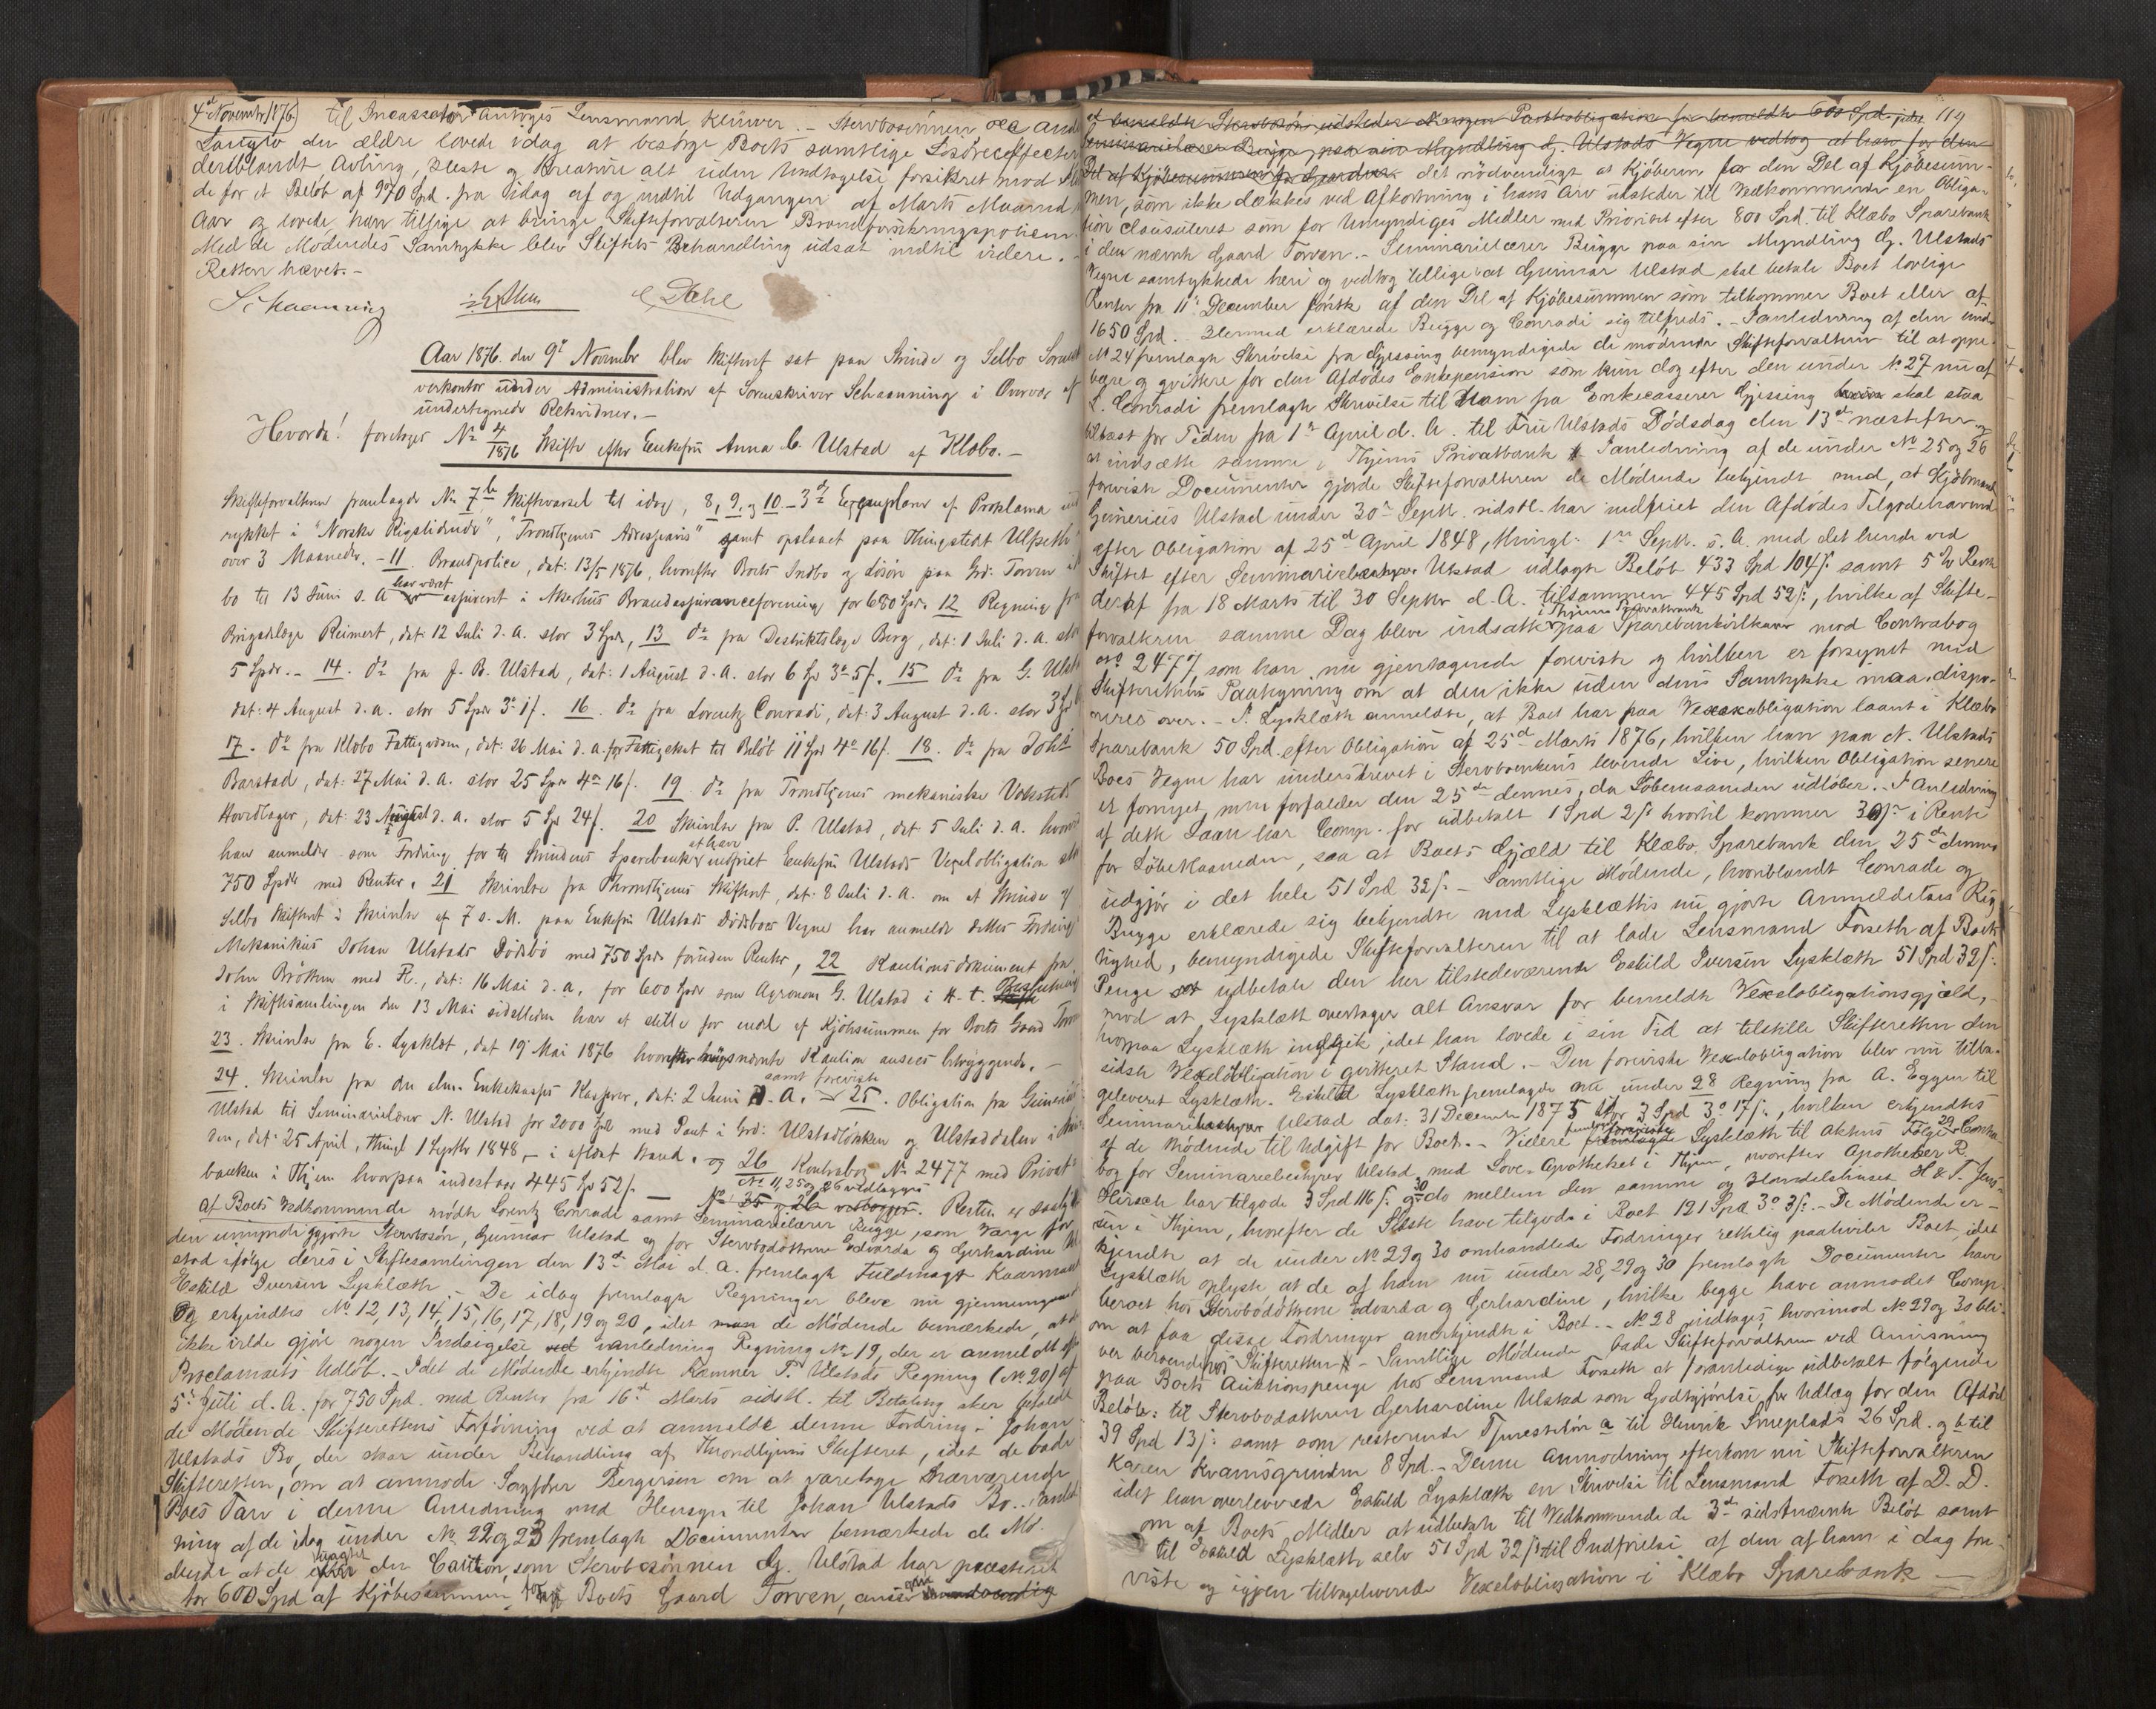 4de November 1876. til Incassator antoges Lensmand Klüwer. – Stervbosønnen Ole And
Langlo den ældre lovede idag at besørge Boets samtlige Løsøreeffecter
deriblandt Avling, Heste og Kreature alt uden Undtagelse forsikret mod
de for et Beløb af 970 Spd. fra Idag af og indtil Udgangen af Marts Maaned
Aar og lovede han tillige at bringe Skifteforvalteren Brandforsikringspolicen.
Med de Mødendes Samtykke blev Skiftets Behandling udsat indtil videre. –
Retten hævet. –
Schaanning Dahl
Aar 1876 den 9de Novembr blev Skifteret sat paa Strinde og Selbo Soren
verkontor under Administration af Sorenskriver Schaanning i Overvær af
undertegnede Retsvidner. –
Hvorda! foretoges No 4/1876 Skifte efter Enkefru Anna C. Ulstad af Klæbo. –
Skifteforvalteren fremlagde No 7b Skiftevarsel til idag, 8, 9, og 10 – 3de Exemplarer af Proklama ind
rykket i "Norske Rigstidende", "Trondhjems Adresseavis" samt opslaaet paa Thingstedet Ulseth
over 3 Maaneder. – 11. Brandpolice, dat: 13/5 1876, hvorefter Boets Indbo og Løsøre paa Grd: Torven i
bo til 13 Juni s. A har været assureret i Akershus Brandassuranceforening for 680 Spd. 12 Regning fra
Brigadelæge Reimert, dat: 12 Juli d. A. stor 3 Spd, 13 do fra Destriktslæge Berg, dat: 1 Juli d. A. stor
5 Spdr. – 14. do fra J. B. Ulstad, dat: 1 August d. A. stor 6 Sp 3o 5s. 15 do fra G. Ulst
dat: 4 August d. a. stor 5 Spdr 3o 1s. 16. do fra Lorentz Conradi, dat: 3 August d. A. stor 3 Spd
17. do fra Klæbo Fattigvæsen, dat: 26 Mai d. a. for Fattigskat til Beløb 11 Spd 4o 16s. 18. do fra Johs
Barstad, dat: 27 Mai d. A. stor 25 Spd 4o 16s. 19 do fra Trondhjems mekaniske Værksteds
Hovedlager, dat: 23 August d. a. stor 5 Sp 24s. 20 Skrivelse fra P. Ulstad, dat: 5 Juli d. A. hvorved
han anmelder som Fordring for til Strindens Sparebank at have indfriet Enkefru Ulstads Vexelobligation stor
750 Spdr med Renter. 21 Skrivelse fra Throndhjems Skifteret, dat: 8 Juli d. A. om at Strinde og
Selbo Skifteret i Skrivelse af 7 s. M. paa Enkefru Ulstads Dødsboes Vegne har anmeldt dettes Fordring i
Mekanikus Johan Ulstads Dødsbo med 750 Spdr foruden Renter, 22 Kautionsdokument fra
John Brøttem med Fl., dat: 16 Mai d. a. for 600 Spdr som Agronom G. Ulstad i H. t. Beslutning
i Skiftesamlingen den 13 Mai sidstleden har at stille for endel af Kjøbesummen for Boets Gaard Torven
23. Skrivelse fra E. Lysklet, dat 19 Mai 1876 hvorefter nysnævnte Kaution ansees betryggende. –
24. Skrivelse fra den alm. Enkekasses Kasserer, dat: 2 Juni d. A. samt foreviste 25. Obligation fra Gunerius
Ulstad til Seminarielærer N. Ulstad for 2000 Spd med Pant i Grd: Ulstadløkken og Ulstaddalen i
den, dat: 25 April, thingl 1 Septbr 1848, – i afløst Stand. og 26 Kontrabog No 2477 med Privat
banken i Thjem hvorpaa indestaar 445 Sp 52s. – No 11, 25 og 26 vedlægges
Af Boets Vedkommende mødte Lorentz Conradi samt Seminarielærer Bugge, som Værge for
den umyndiggjorte Stervbosøn, Gunnar Ulstad og for Stervbodøttrene Edvarda og Gerhardine Ul
stad ifølge deres i Skiftesamlingen den 13de Mai d. A. fremlagte Fuldmagt Kaarmand
Eskild Iversen Lysklæth. – De idag fremlagte Regninger bleve nu gjennemgaaet
og erkjendtes No 12, 13, 14, 15, 16, 17, 18, 19 og 20, idet de Mødende bemærkede, at de
ikke vilde gjøre nogen Indsigelse i Anledning Regning No 19, der er anmeldt efter
Proclamaets Udløb. – Idet de Mødende erkjendte Kamner P. Ulstads Regning (No 20) af
5te Juli d. A. for 750 Spd. med Renter fra 16de Marts sidstl. til Betaling sker bifaldt
de Mødende Skifterettens Forføining ved at anmelde denne Fordring i Johan
Ulstads Bo, der staar under Behandling af Throndhjems Skifteret, idet de bade
Skifteretten, om at anmode Sagfører Bergersen om at varetage nærværende
Boes Tarv i denne Anledning med Hensyn til Johan Ulstads Bo. – I Anled
ning af de idag under No 22 og 23 fremlagte Documenter bemærkede de Mø-
dende at de den Caution, som Stervbosønnen G. Ulstad har præsteret
for 600 Spd af Kjøbesummen for Boets Gaard Torven, ansees
119
det nødvendigt at Kjøberen for den Del af Kjøbesum-
men, som ikke dækkes ved Afkortning i hans Arv udsteder til Vedkommende en Obliga-
tion clausuleret som for Umyndiges Midler med Prioritet efter 800 Spd. til Klæbo Sparebank
i den nævnte Gaard Torven. – Seminarielærer Bugge paa sin Myndling G. Ulstads
Vegne samtykkede heri og vedtog tillige at Gunnar Ulstad skal betale Boet lovlige
Renter fra 11te December førstk. af den Del af Kjøbesummen som tilkommer Boet eller af
1650 Spd. Hermed erklærede Bugge og Conradi sig tilfreds. – I Anledning af den under
No 24 fremlagte Skrivelse fra Gjessing bemyndigede de mødende Skifteforvalteren til at oppe-
bære og qvittere for den Afdødes Enkepension som kun dog efter den under No 27 nu af
L. Conradi fremlagte Skrivelse til ham fra Enkecasserer Gjessing skal staa
tilbast for Tiden fra 1ste April d. A. til Fru Ulstads Dødsdag den 13de næstefter og
at indsætte samme i Thjems Privatbank. I Anledning af de under No 25 og 26
foreviste Documenter gjorde Skifteforvalteren de Mødende bekjendt med, at Kjøbmand
Gunerius Ulstad under 30te Septr. sidstl. har indfriet den Afdødes Tilgodehavende
efter Obligation af 25de April 1848, thingl. 1ste Septr. s. A. med det hende ved
Skiftet efter Seminariebestyrer Ulstad udlagte Beløb 433 Spd 104s. samt 5% Rente
deraf fra 18 Marts til 30 Septbr d. A. tilsammen 445 Spd 52s., hvilke af Skifte-
forvalteren samme Dag bleve indsatte i Thjems Privatbank paa Sparebankvilkaar med Contrabog
No 2477, som han nu gjentagende foreviste og hvilken er forsynet med
Skifterettens Paategning om at den ikke uden dens Samtykke maa dispo-
neres over. – E. Lysklæth anmeldte, at Boet har paa Vexelobligation laant i Klæbo
Sparebank 50 Spd. efter Obligation af 25de Marts 1876, hvilken han paa N. Ulstads
Boes Vegne har underskrevet i Stervboenkens levende Live, hvilken Obligation senere
er fornyet, men forfalder den 25de dennes, da Løbemaaneden udløber. – I Anledning
af dette Laan har Comp. for udbetalt 1 Spd 2s. hvortil kommer 30s. i Rente
for Løbemaaneden, saa at Boets Gjæld til Klæbo Sparebank den 25de dennes
udgjør i det hele 51 Spd 32s. – Samtlige Mødende, hvoriblandt Conradi og
Bugge erklærede sig bekjendte med Lysklæths nu gjorte Anmeldelses Rig-
tighed, bemyndigede Skifteforvalteren til at lade Lensmand Forseth af Boets
Penge udbetale den her tilstedeværende Eskild Iversen Lysklæth 51 Spd 32s.
mod at Lysklæth overtager alt Ansvar for bemeldte Vexelobligationsgjæld, –
hvorpaa Lysklæth indgik, idet han lovede i sin Tid at tilstille Skifteretten den
sidste Vexelobligation i qvitteret Stand. – Den foreviste Vexelobligation blev nu tilba-
geleveret Lysklæth. – Eskild Lysklæth fremlagde nu under 28 Regning fra A. Eggen til
Seminariebestyrer Ulstad dat: 31 December 1875 stor 3 Spd 3o 17s., hvilken erkjendtes
af de Mødende til Udgift for Boet. – Videre foreviste Lysklæth til Aktens Følge 29 Contra-
bog for Seminariebestyrer Ulstad med Løve-Apotheket i Thjem, hvorefter Apotheker R.
Hirsch har tilgode 3 Spd 116s. og 30 do mellem den samme og Handelshuset H & F. Jen-
sen i Thjem, hvorefter de Sidste have tilgode i Boet 121 Spd 3o 3s. – De Mødende er-
kjendte at de under No 29 og 30 omhandlede Fordringer retslig paahviler Boet, idet
Lysklæth oplyste at de af ham nu under 28, 29 og 30 fremlagte Documenter have
beroet hos Stervbodøttrene Edvarda og Gerhardine, hvilke begge have anmodet Comp.
om at faa disse Fordringer anerkjendte i Boet. – No 28 indtages, hvorimod No 29 og 30 bli-
ver beroende hos Skifteretten. – Samtlige Mødende bade Skifteforvalteren ved Anvisning
paa Boets Auktionspenge hos Lensmand Forseth at foranledige udbetalt følgende
Beløb: til Stervbodatteren Gerhardine Ulstad som Godtgjørelse for Udlæg for den Afdød
39 Spd 13s. samt som resterende Tjenesteløn a til Henrik Sneplads 26 Spd. og b til
Karen Kvamsgrinden 8 Spd. – Denne Anmodning efterkom nu Skifteforvalteren
idet han overleverede Eskild Lysklæth en Skrivelse til Lensmand Forseth af D. D.
om af Boets Midler at udbetale til Vedkommende de 3de sidstnævnte Beløb samt
til Eskild Lysklæth selv 51 Spd 32s. til Indfrielse af den af ham i dag fore-
viste og igjen tilbageleverede Vexelobligation i Klæbo Sparebank –